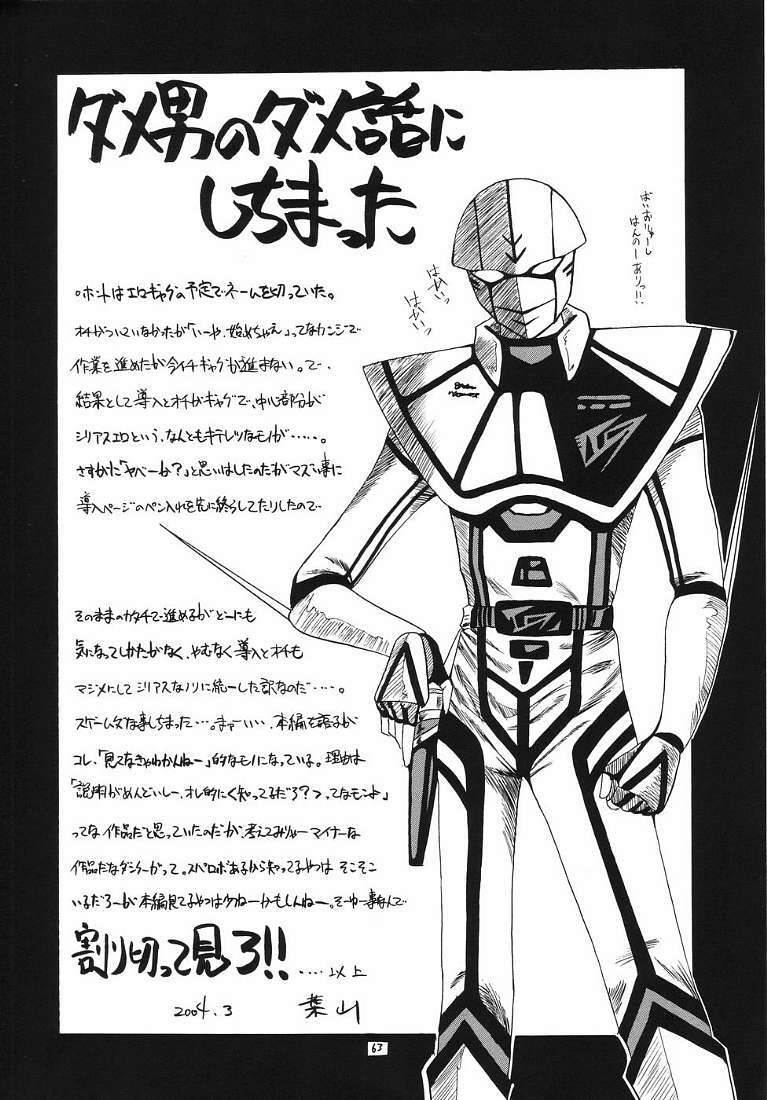 ダメ男のダメ話に
しちまった
ばいおりれーし
はんのーありっ!!
はぁいっ
はぁいっ
ホントはエロギャグの予定でネームを切っていた。
オチがついていなかったが「いーや、始めちゃえ」ってなカンジで
作業を進めたが今イチギャグが進まない。で、
結果として導入とオチがギャグで、中心部分が
シリアスエロという、なんともキテレツなモノが‥‥‥。
さすがに「ヤベーか?」と思いはしたのだがマズい事に
導入ページのペン入れを先に終らしてたりしたので
そのままのカタチで進めるがどーにも
気になってしかたがなく、やむなく導入とオチも
マジメにしてシリアスなノリに統一した訳なのだ‥‥。
スゲームダな事しちまった‥‥。まぁーいい、本編を語るが
コレ、「見てなきゃわかんねー」的なモノになっている。理由は
「説明がめんどいしー、オレ的にく知ってるだろ?>てなモンよ」
ってな作品だと思っていたのだが、考えてみりゃーマイナーな
作品だなダンクーガって。スパロボあるから知ってるやつは そこそこ
いるだろーが本編見てるやつは少ねーかもしんねー。そーゆー事なんで
割り切って見ろ!!‥‥以上
2004.3 葉山
63